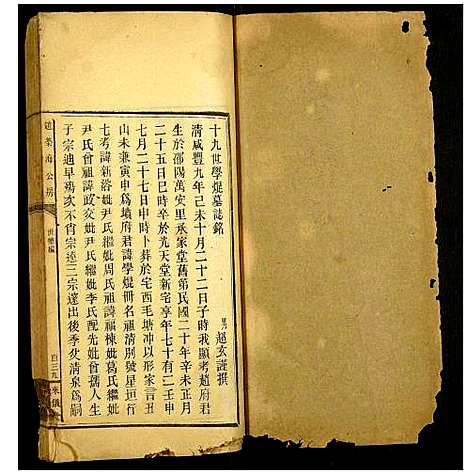 十九世學焜墓誌銘
男乃超玄謹撰
清咸豐九年己未十月二十二日子時我顯考趙府君
生於邵陽萬安里承家堂舊第民國二十年辛未正月
二十五日巳時卒於光天堂新宅享年七十有二壬申
七月二十七日申時卜葬於宅西毛塘冲以形家言丑
山未兼寅申爲墳府君諱學焜冊名祖清別號星垣行
七考諱新溶妣尹氏繼妣周氏祖諱福棟妣葛氏繼妣
尹氏曾祖諱政交妣尹氏繼妣李氏配先妣曾孺人生
子宗迪早殤次不肖宗逵三宗達出後季父清泉爲嗣
廷棻海公房
世變編
百三九
來儀